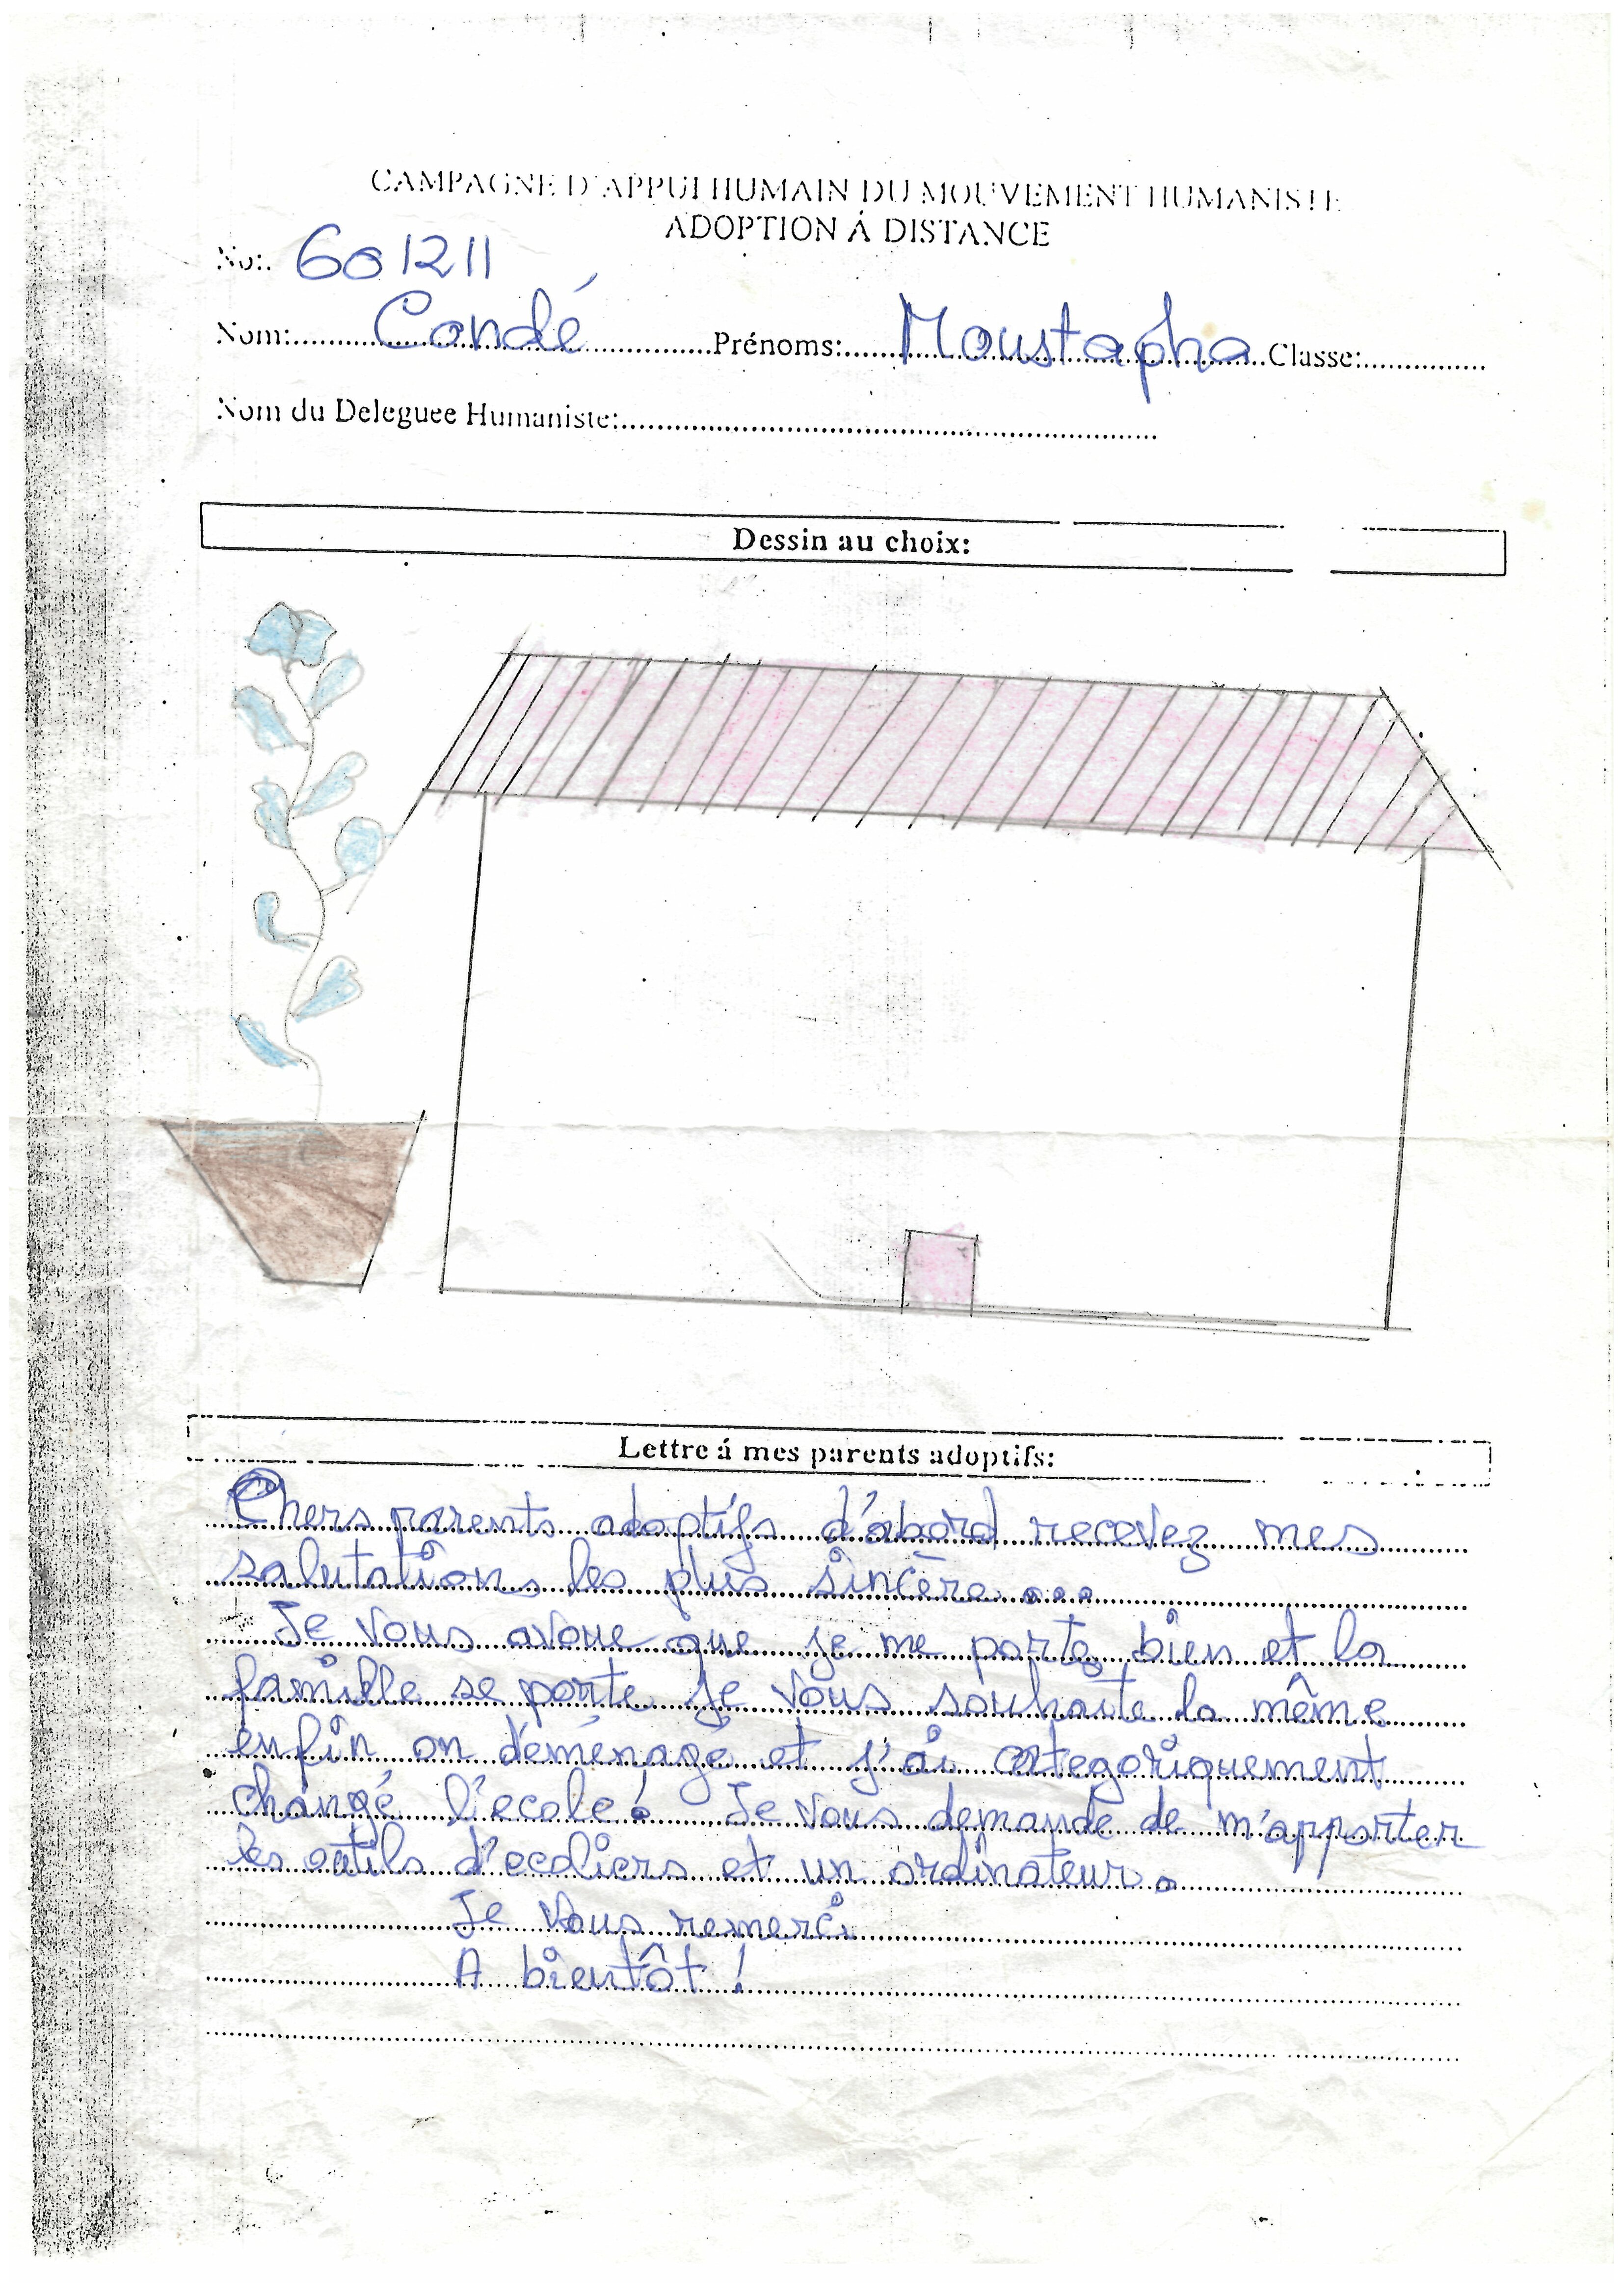 CAMPAGNE D'APPUI HUMAIN DU MOUVEMENT HUMANISTE
ADOPTION Á DISTANCE
No: 601211
Nom: Condé Prénoms: Moustapha Classe:
Nom du Deleguee Humaniste:
Dessin au choix:
Lettre á mes parents adoptifs:
Chers parents adoptifs d'abord recevez mes
salutations les plus sincère...
Je vous avoue que je me porte bien et la
famille se porte je vous souhaite la même
enfin on déménage et j'ai categoriquement
changé l'ecole! Je vous demande de m'apporter
les outils d'ecoliers et un ordinateur.
Je vous remerci
A bientôt!